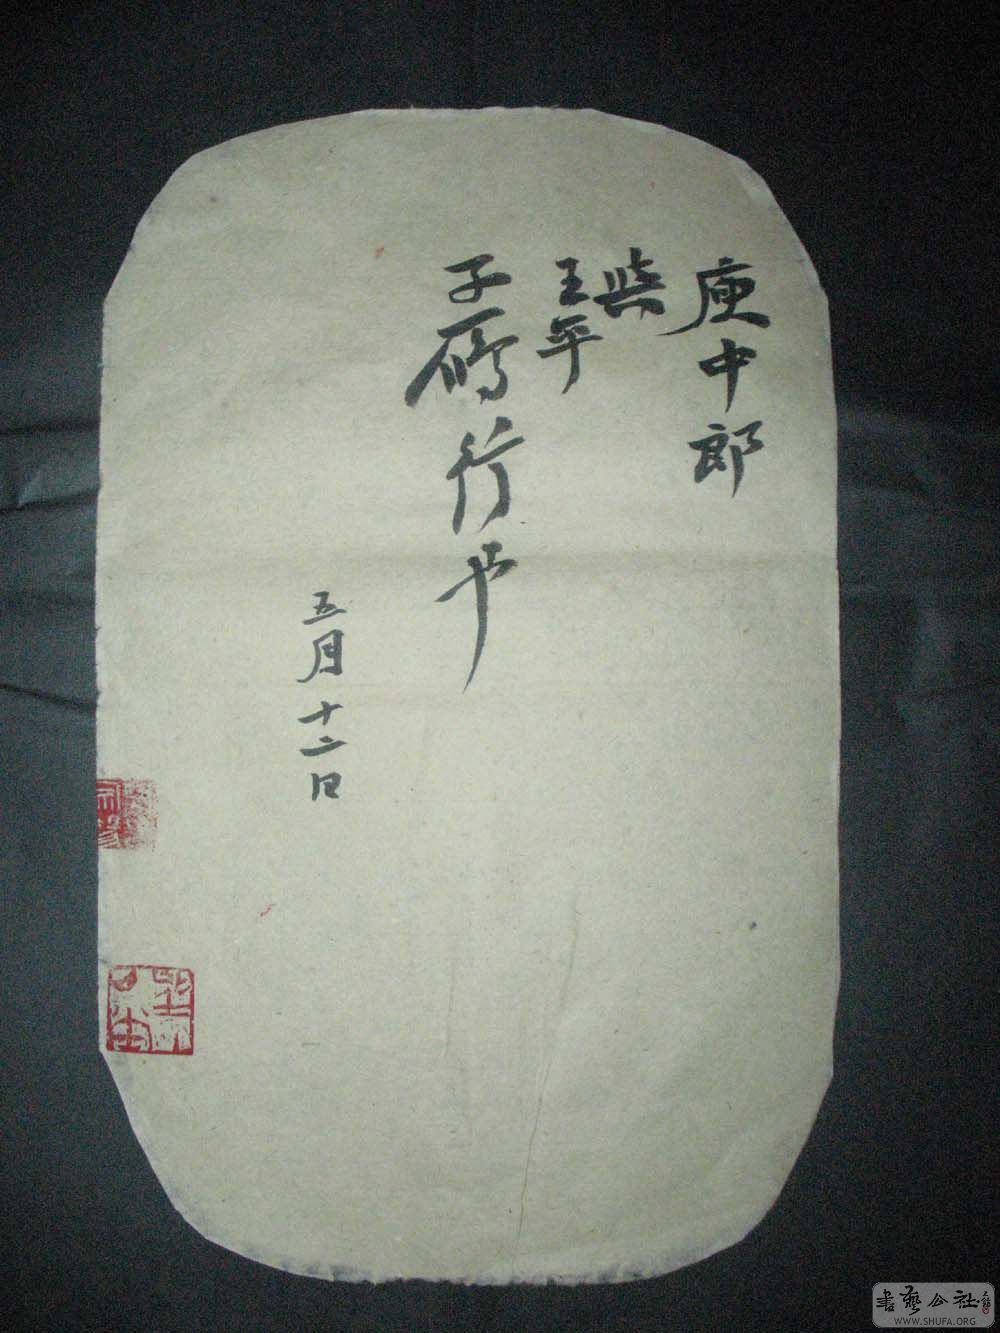 庾中郎
與
王平
子鴈行也
五月十二日
書藝公社
WWW.SHUFA.ORG